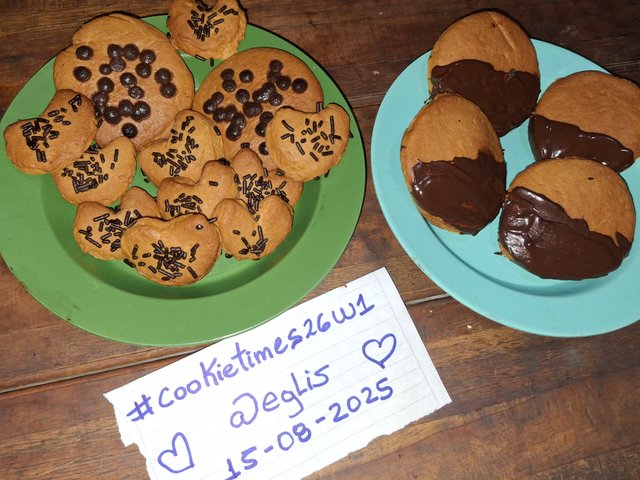 #cookietimes26w1
@eglis
15-08-2025